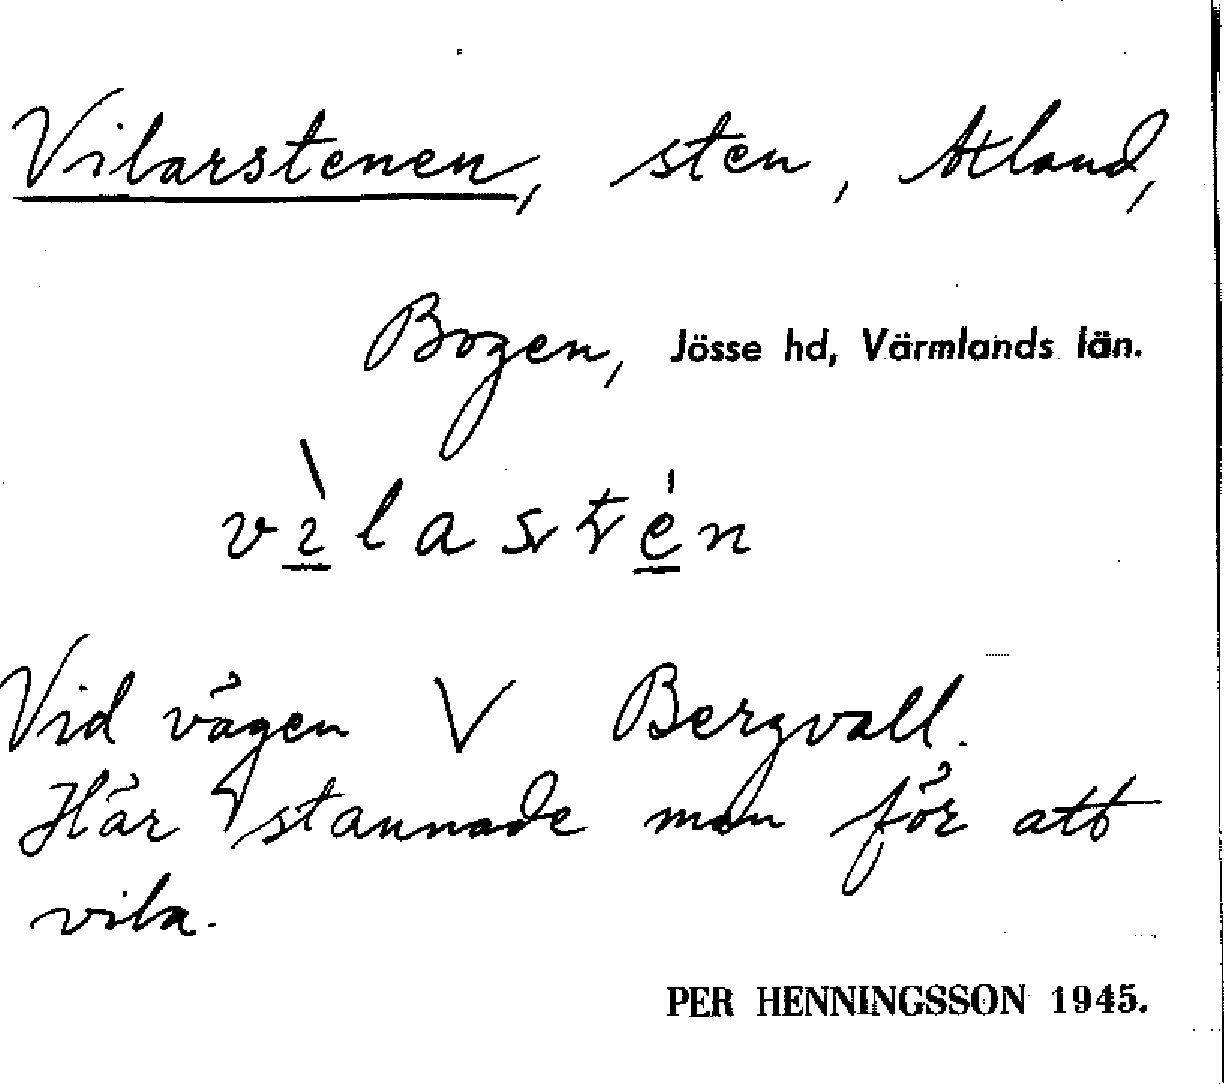 Vilarstenen, sten, Åtland,
Bogen, Jösse hd, Värmlands län.
vìlastén
Vid vägen V Bergvall.
Här stannade man för att
vila.
PER HENNINGSSON 1945.